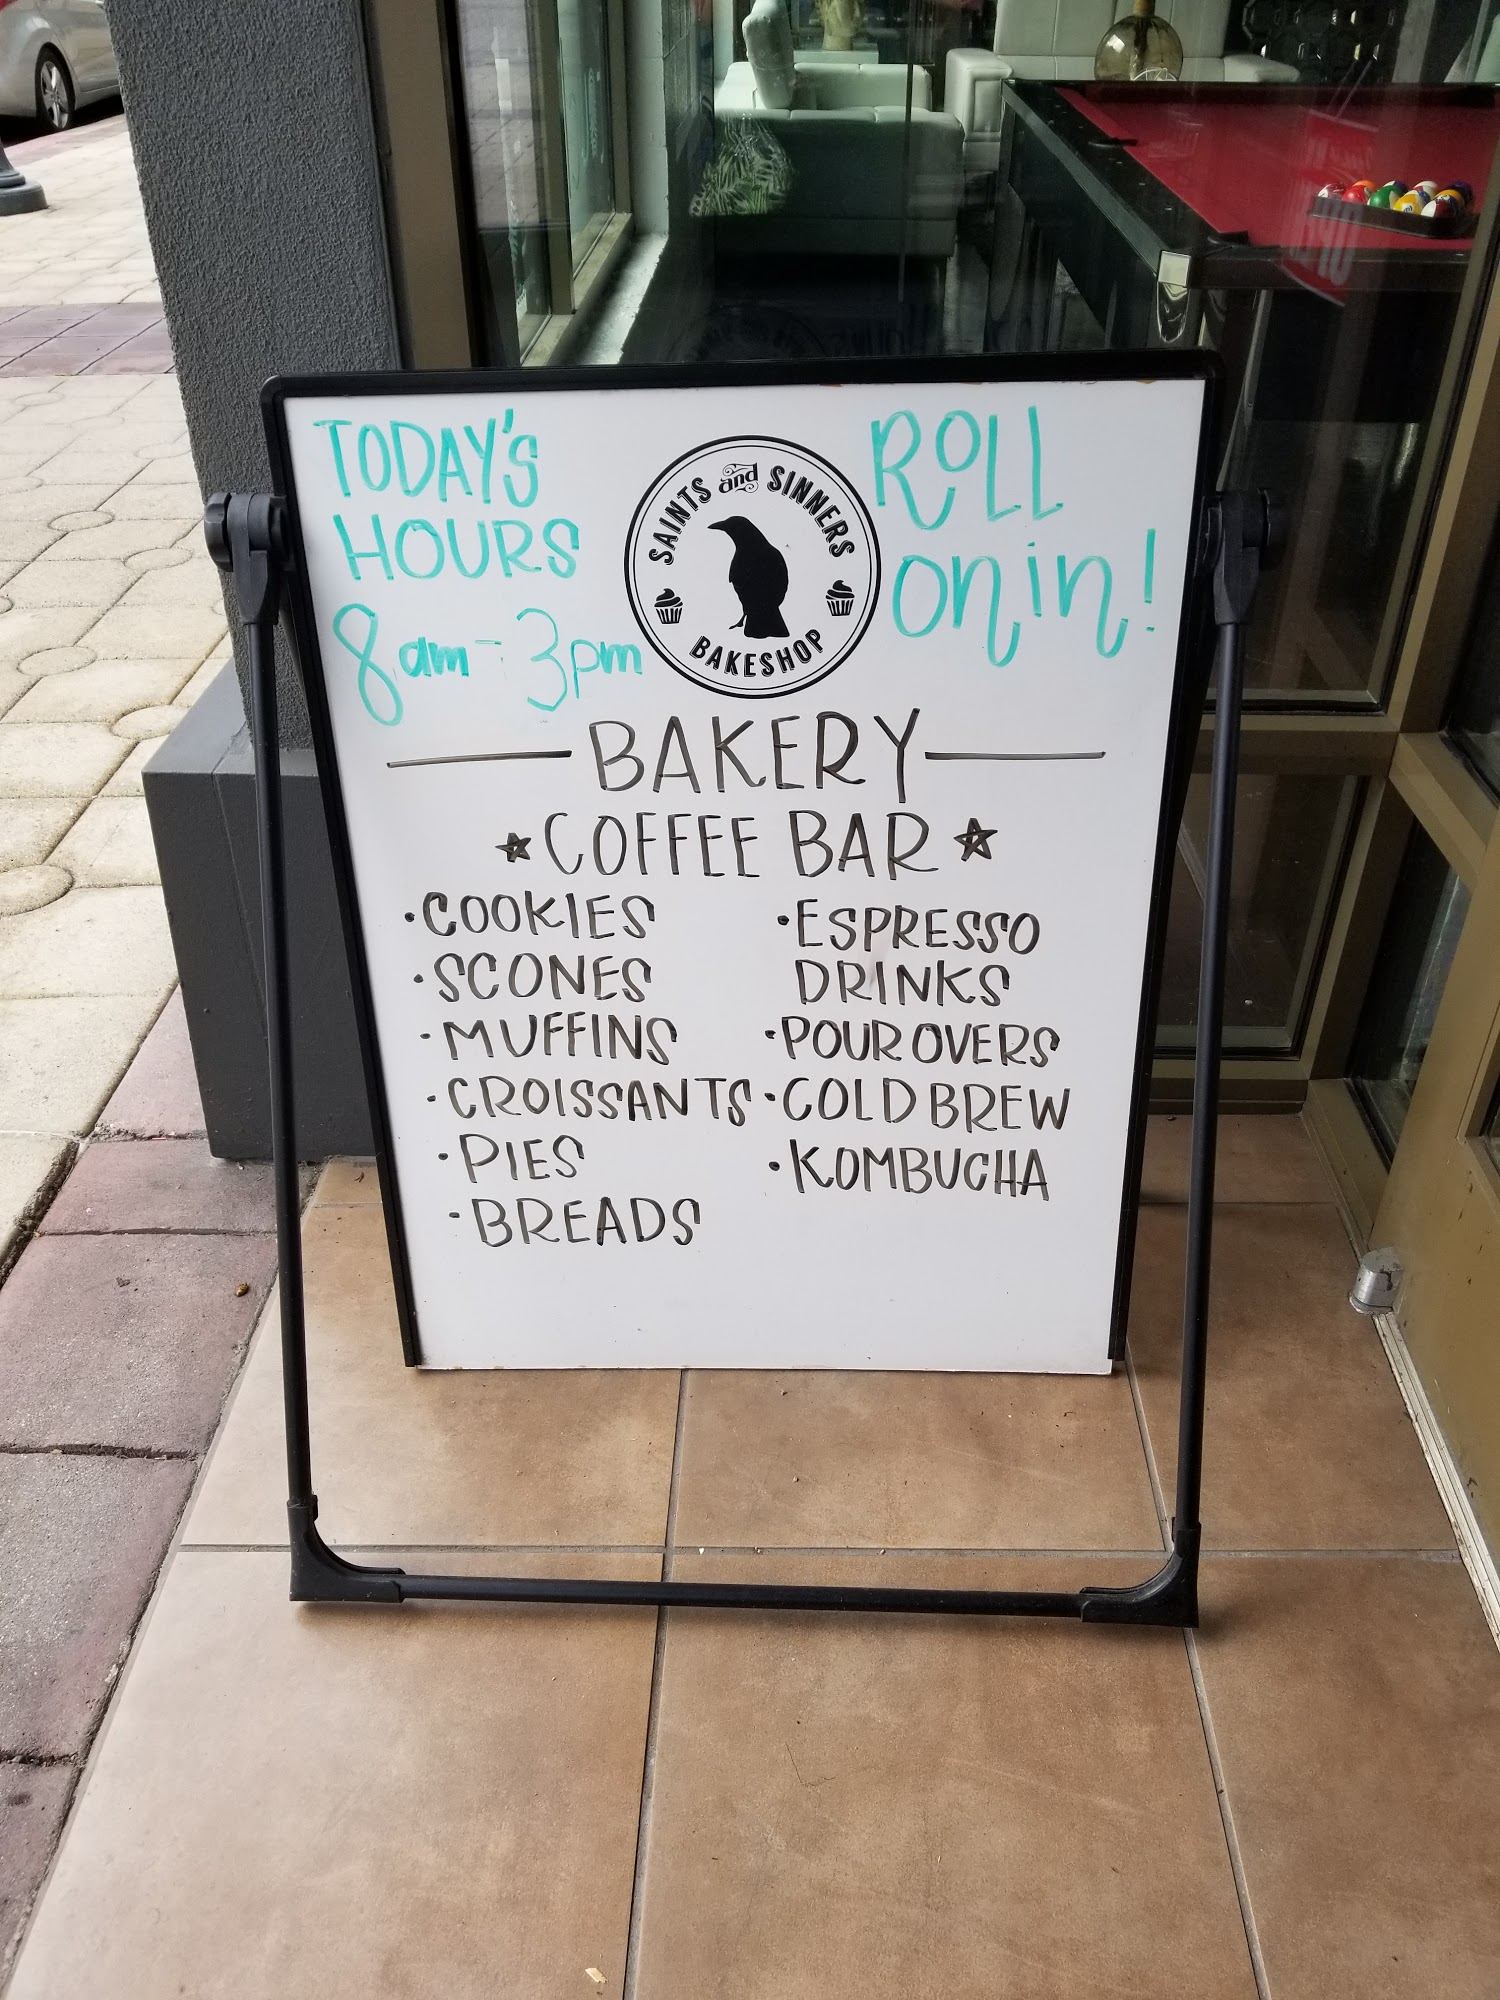 TODAY'S
HOURS
8am - 3pm
SAINTS and SINNERS
BAKESHOP
ROLL
on in!
BAKERY
COFFEE BAR
• COOKIES
• SCONES
• MUFFINS
• CROISSANTS
• PIES
• BREADS
• ESPRESSO
DRINKS
• POUR OVERS
• COLD BREW
• KOMBUCHA